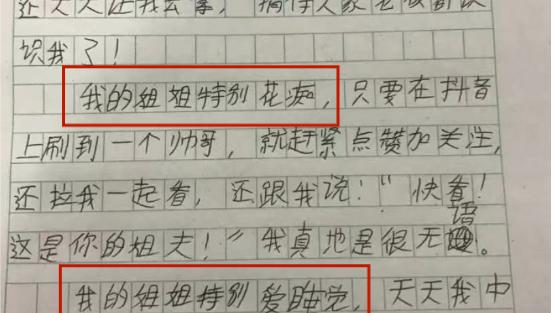 还天天让我去拿，搞得人家老板都认
识我了！
我的姐姐特别花痴，只要在抖音
上刷到一个帅哥，就赶紧点赞加关注，
还拉我一起看，还跟我说：“快看！
这是你的姐夫！”我真地是很无语。
我的姐姐特别爱睡觉，天天我中